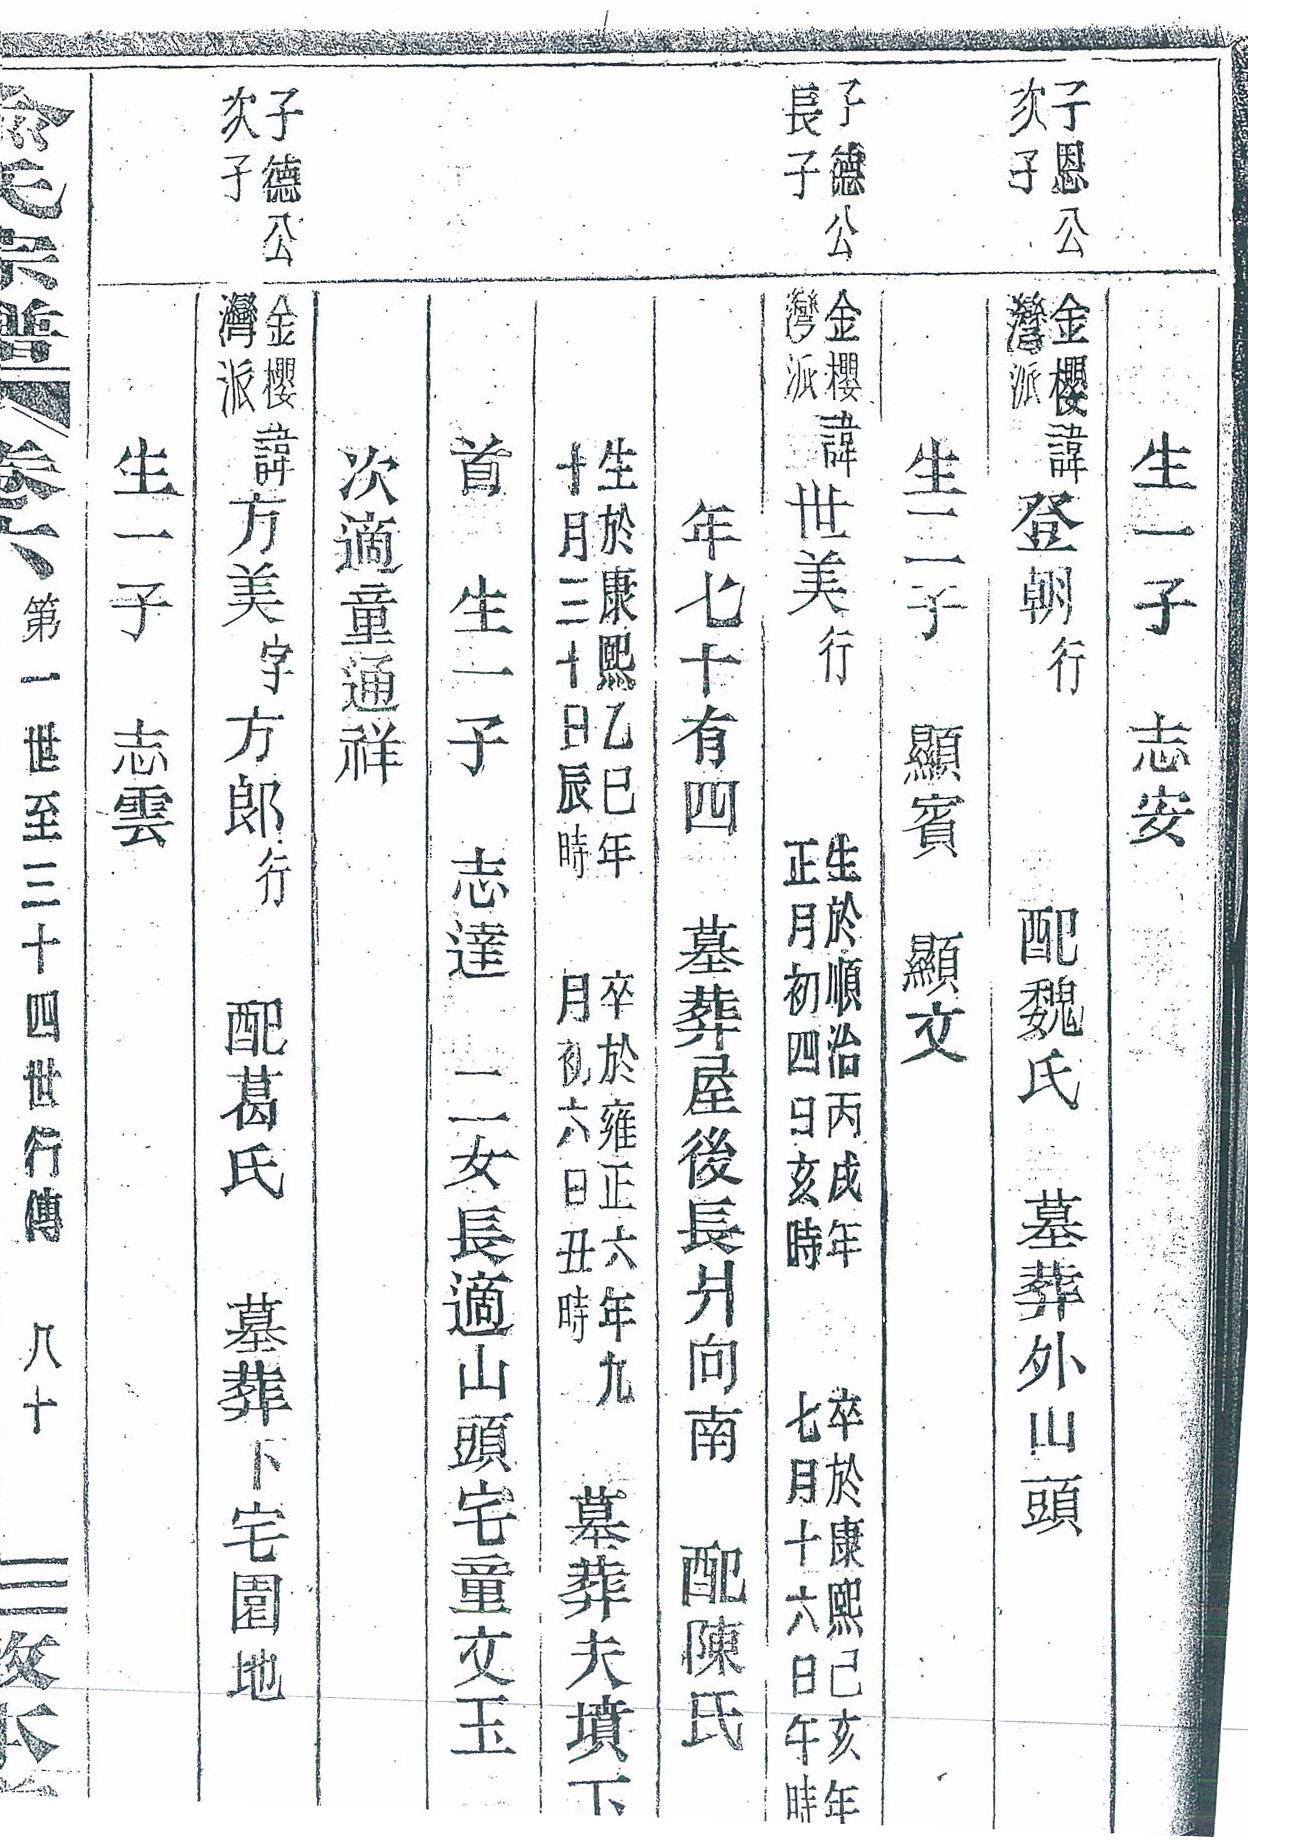 生一子　志安
子恩公
次子
金櫻
灣派
諱登朝行　配魏氏　墓葬外山頭
生二子　顯賓　顯文
子德公
長子
金櫻
灣派
諱世美行
生於順治丙戌年
正月初四日亥時
卒於康熙己亥年
七月十六日午時
年七十有四　墓葬屋後長爿向南　配陳氏
生於康熙乙巳年
十月三十日辰時
卒於雍正六年九
月初六日丑時
墓葬夫墳下
首　生一子　志達　二女長適山頭宅童文玉
次適童通祥
子德公
次子
金櫻
灣派
諱方美字方郎行　配葛氏　墓葬下宅園地
生一子　志雲
氏宗譜　卷六　第一世至三十四世行傳　八十　三